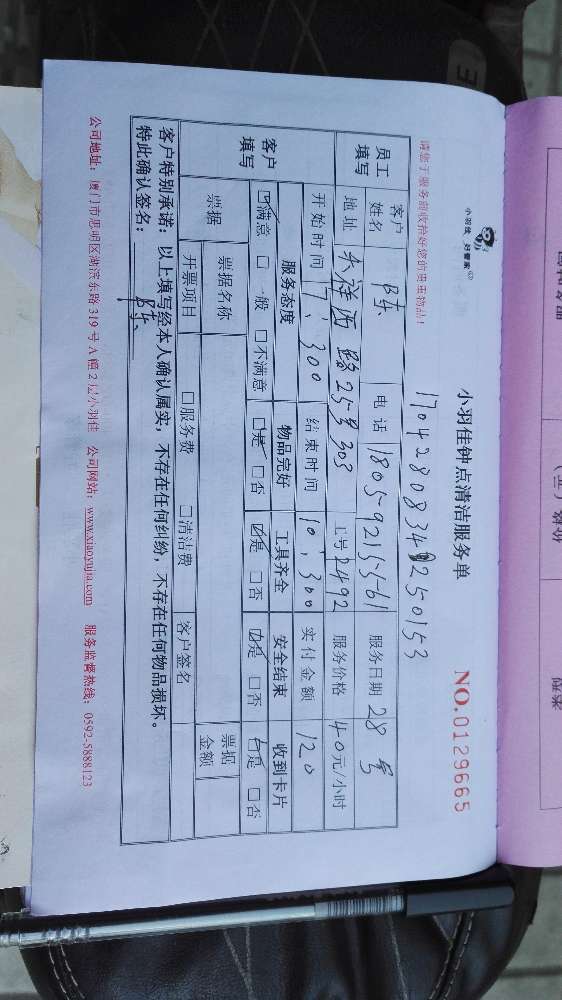 小羽佳 好管家
小羽佳钟点清洁服务单
NO.0129665
170428083482250153
请您于服务前收拾好您的贵重物品!
员工填写 客户姓名 陈 电话 18059215561 服务日期 28号
地址 禾祥西路25号303 工号 2492 服务价格 40元/小时
开始时间 7:300 结束时间 10:300 实付金额 120
客户填写 服务态度 物品完好 工具齐全 安全结束 收到卡片
☑满意 □一般 □不满意 ☑是 □否 ☑是 □否 ☑是 □否 ☑是 □否
票据 票据名称 票据金额
开票项目 □服务费 □清洁费 客户签名
客户特别承诺:以上填写经本人确认属实,不存在任何纠纷,不存在任何物品损坏。
特此确认签名: 陈
公司地址:厦门市思明区湖滨东路319号A幢2层小羽佳 公司网站:www.xiaoyujia.com 服务监督热线:0592-5888123